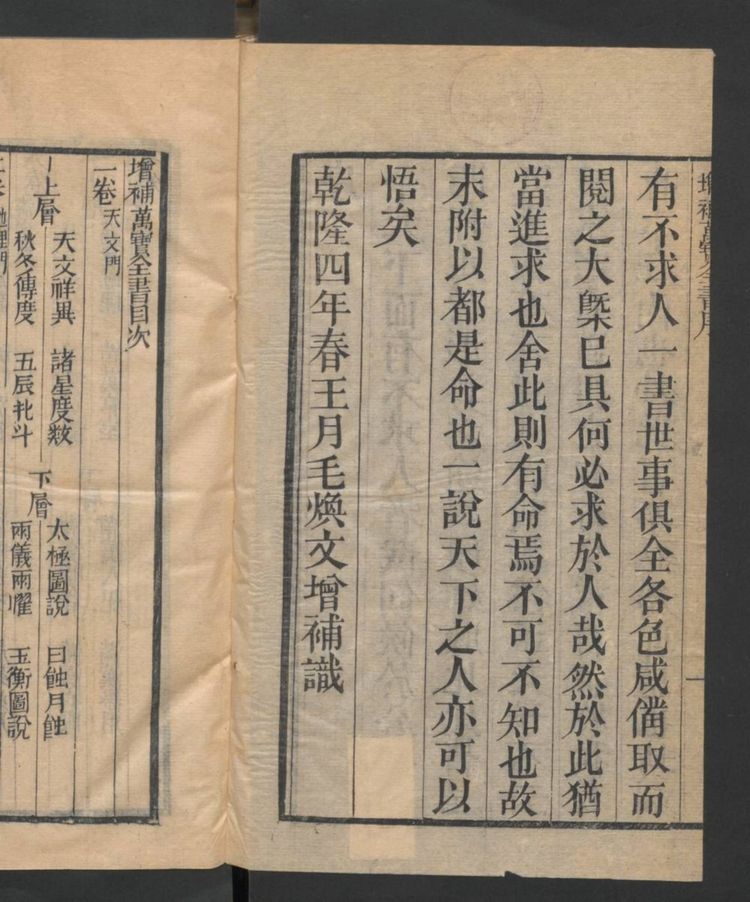 增補萬寶全書序
有不求人一書世事俱全各色咸僃取而
閱之大槩已具何必求於人哉然於此猶
當進求也舍此則有命焉不可不知也故
末附以都是命也一說天下之人亦可以
悟矣
乾隆四年春王月毛煥文增補識
增補萬寶全書目次
一卷天文門
上層
天文祥異 諸星度數
秋冬傳度 五辰牝斗
下層
太極圖說 日蝕月蝕
兩儀兩曜 玉衡圖說